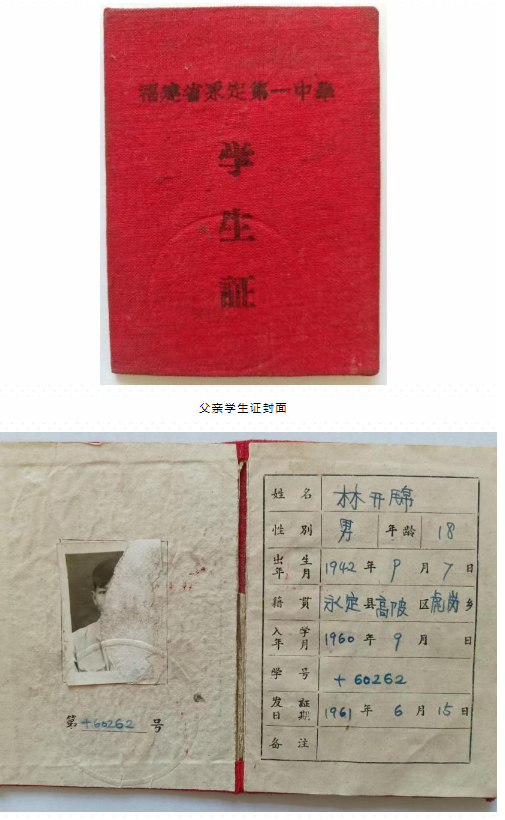 福建省永定第一中学
学
生
証
父亲学生证封面
姓 名 林开锦
性 别 男 年龄 18
出生年月 1942 年 9 月 7 日
籍 贯 永定县高陂区虎岗乡
入学年月 1960 年 9 月 日
学 号 +60262
发証日期 1961 年 6 月 15 日
备 注
第+60262号